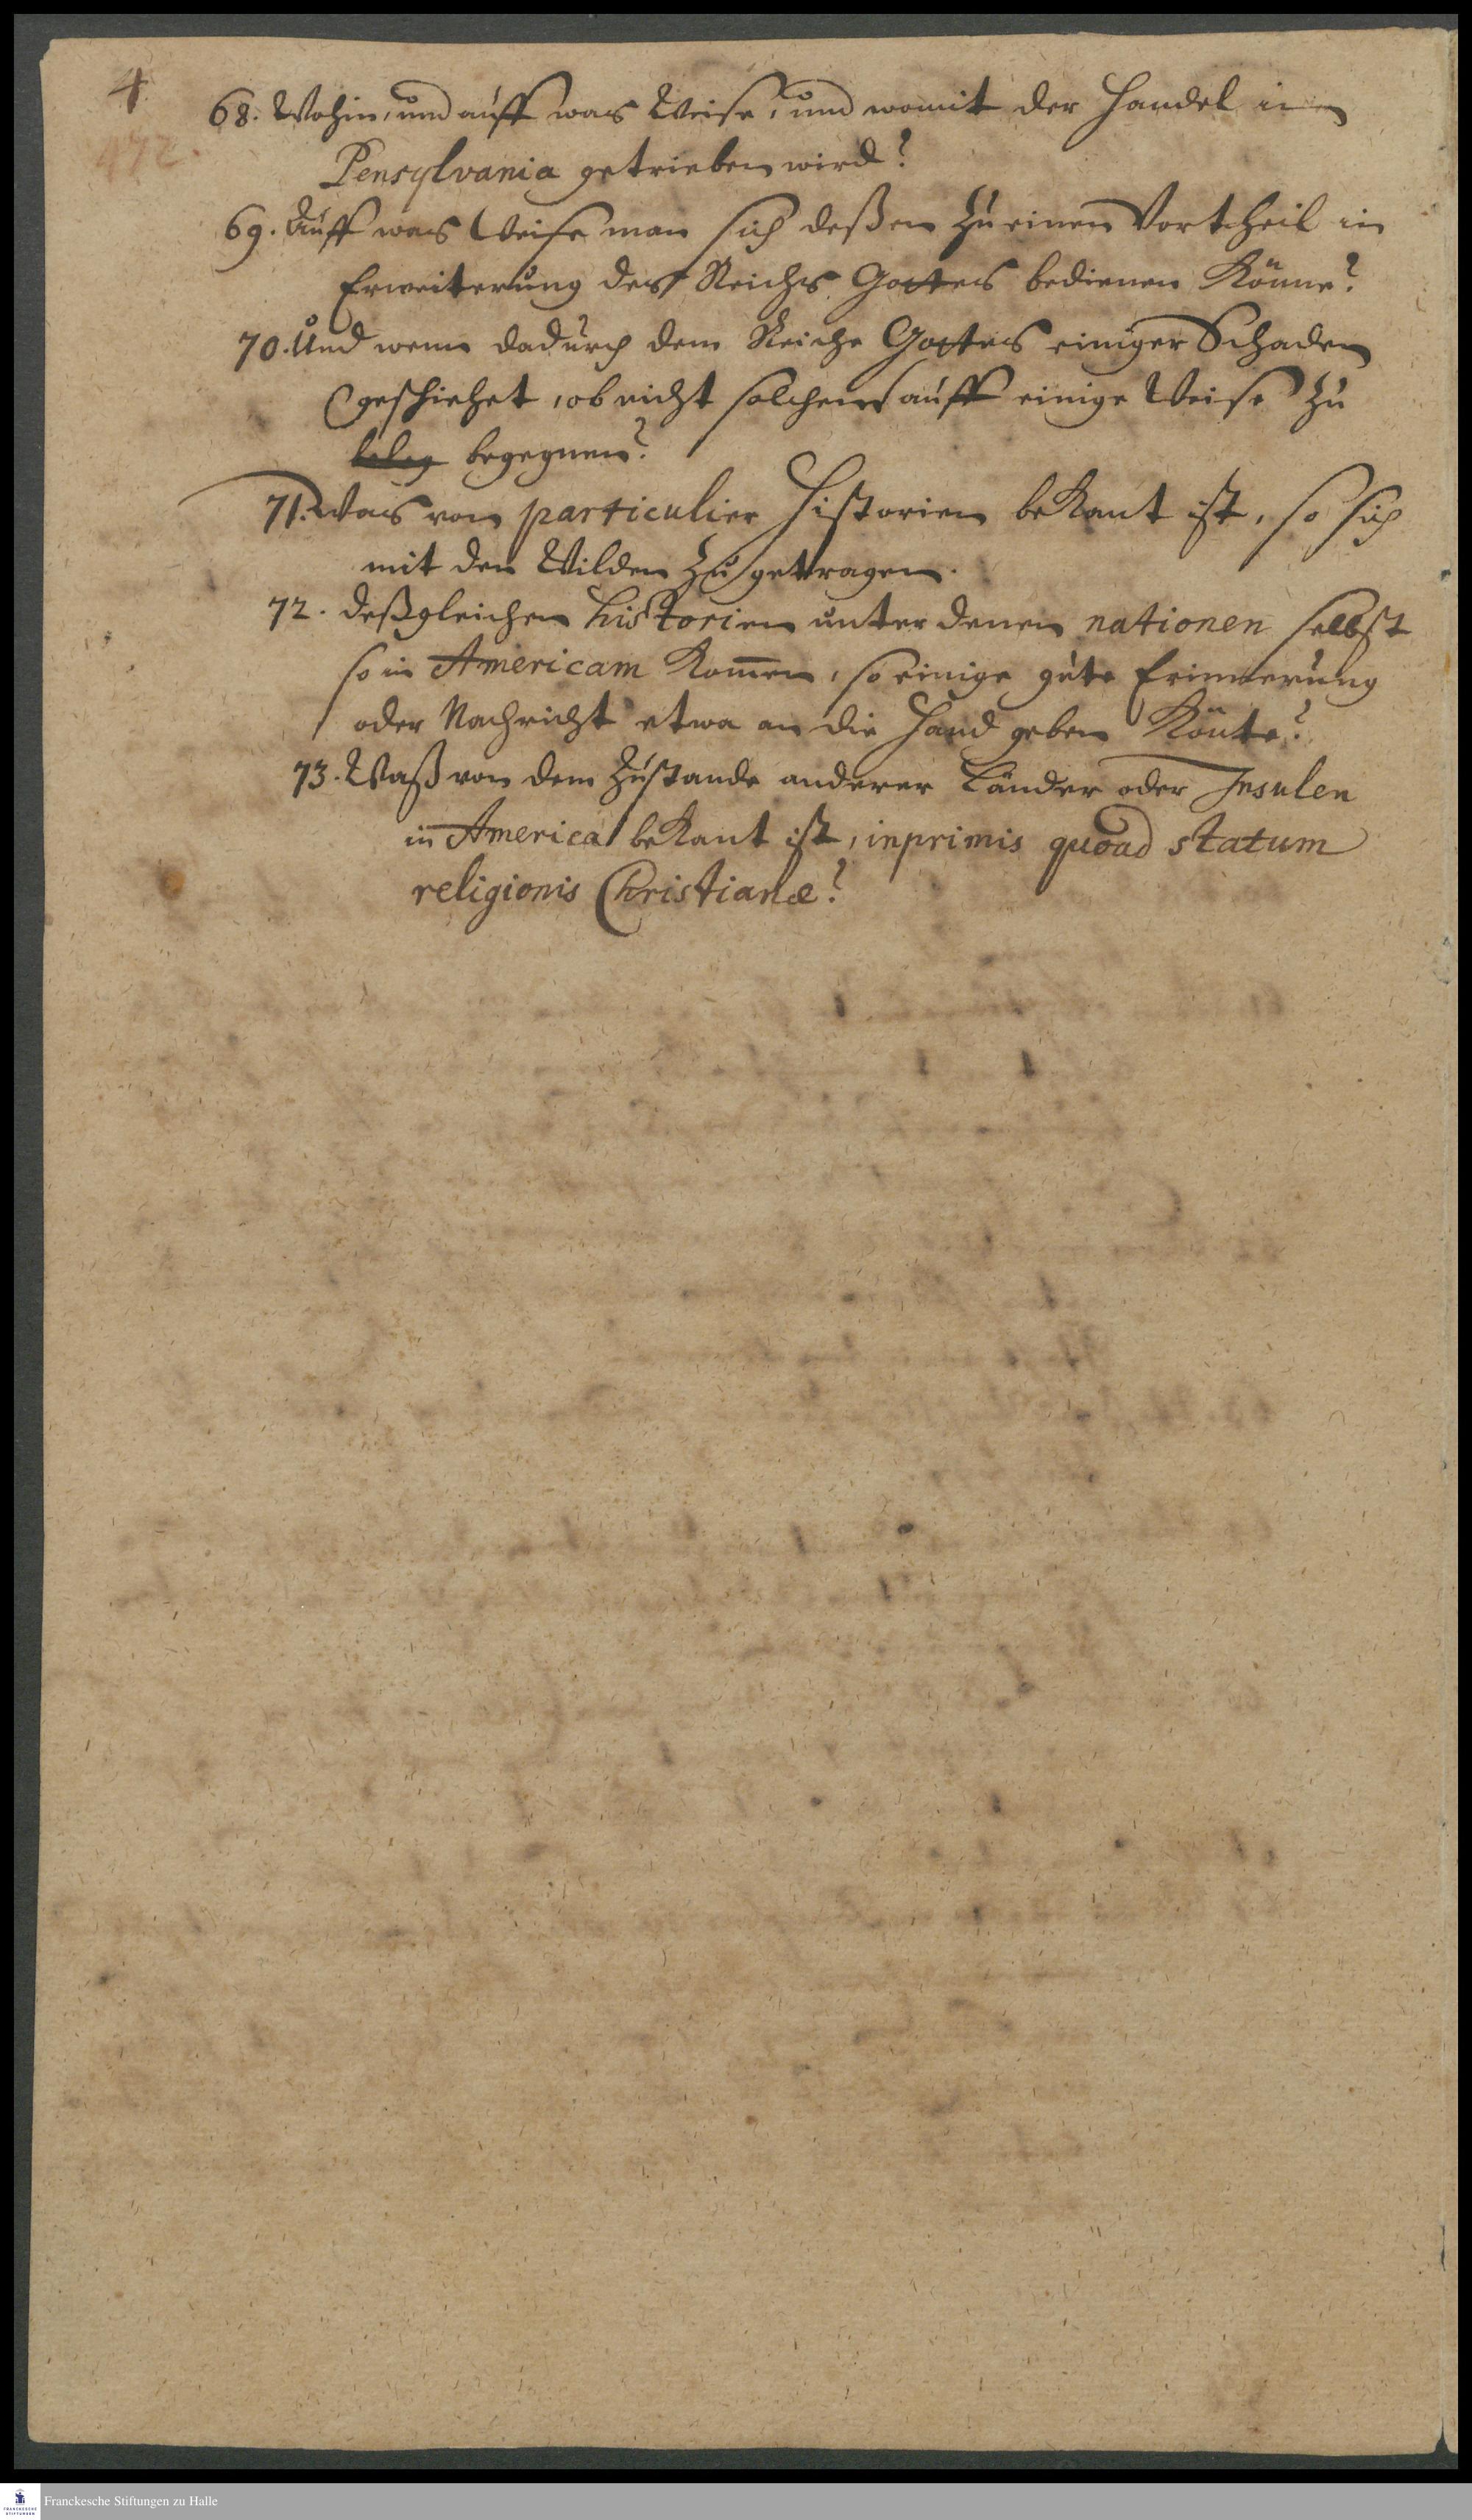 4
472.
68. Wohin, und auff was Weise, und womit der Handel in
Pensylvania getrieben wird?
69. Auff was Weise man sich deßen zu einen Vortheil in
Erweiterung des Reichs Gottes bedienen könne?
70. Und wenn dadurch dem Reiche Gottes einiger Schaden
geschiehet, ob nicht solchem auff einige Weise zu
begegnen?
71. Was von particulier Historien bekant ist, so sich
mit den Wilden zugetragen.
72. deßgleichen historien unter denen nationen selbst
so in Americam kom̄en, so einige gute Erinnerung
oder Nachricht etwa an die Hand geben könte?
73. Waß von dem Zustande anderer Länder oder Insulen
in America bekant ist, inprimis quoad statum
religionis Christianæ?
Franckesche Stiftungen zu Halle